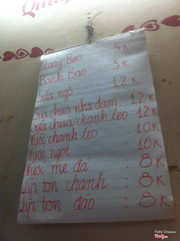 Quán
5K
Bánh Bao 5K
Sữa ngô 12K
Sữa chua nha đam 12K
Sữa chua chanh leo 12K
Nước chanh leo 10K
Nước ngọt 10K
Nước me đá : 8K
Lip ton chanh : 8K
Lip ton đào : 8K